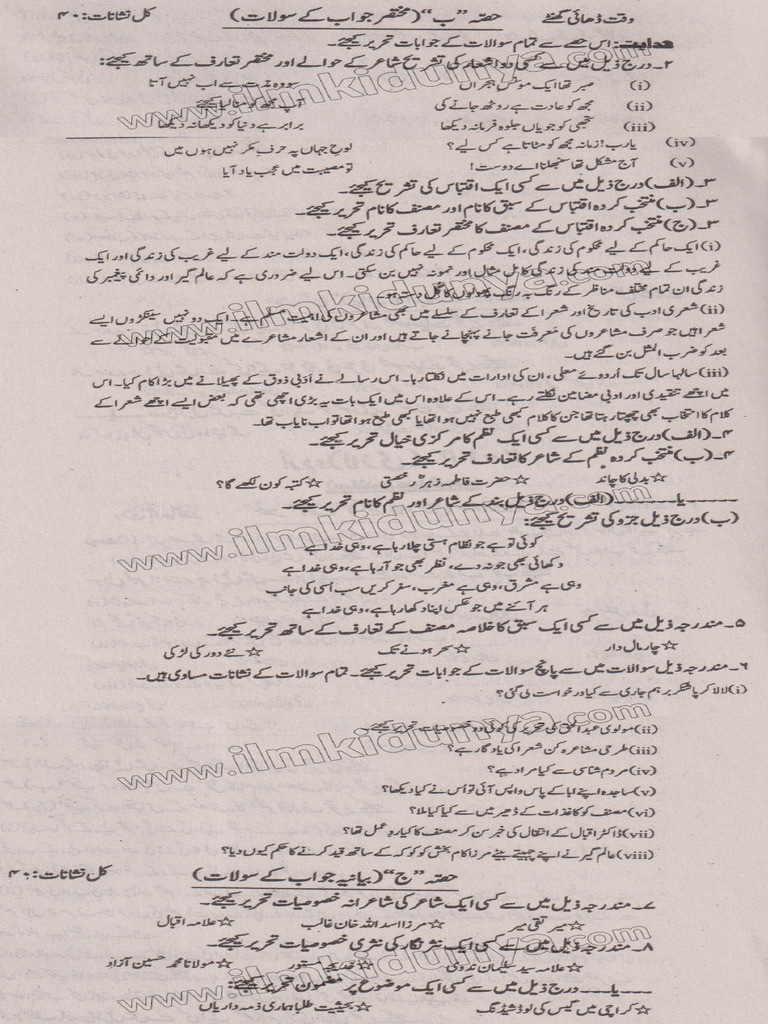 وقت ڈھائی گھنٹے حصّہ ”ب“ (مختصر جواب کے سوالات) کل نشانات: ۴۰
ہدایت: اس حصے سے تمام سوالات کے جوابات تحریر کیجئے۔
۲۔ درج ذیل میں سے کسی دو اشعار کی تشریح شاعر کے حوالے اور مختصر تعارف کے ساتھ کیجئے:
(i) صبر تھا ایک مونس ہجراں سو وہ مدت سے اب نہیں آتا
(ii) مجھ کو عادت ہے روٹھ جانے کی آپ مجھ کو منا لیا کیجئے
(iii) تجھی کو جو یاں جلوہ فرما نہ دیکھا برابر ہے دنیا کو دیکھا نہ دیکھا
(iv) یارب! زمانہ مجھ کو مٹاتا ہے کس لیے؟ لوح جہاں پہ حرفِ مکرر نہیں ہوں میں
(v) آج مشکل تھا سنبھلنا اے دوست! تو مصیبت میں عجب یاد آیا
۳۔ (الف) درج ذیل میں سے کسی ایک اقتباس کی تشریح کیجئے۔
۳۔ (ب) منتخب کردہ اقتباس کے سبق کا نام اور مصنف کا نام تحریر کیجئے۔
۳۔ (ج) منتخب کردہ اقتباس کے مصنف کا مختصر تعارف تحریر کیجئے۔
(i) ایک حاکم کے لیے محکوم کی زندگی، ایک محکوم کے لیے حاکم کی زندگی، ایک دولت مند کے لیے غریب کی زندگی اور ایک
غریب کے لیے دولت مند کی زندگی کامل مثال اور نمونہ نہیں بن سکتی۔ اس لیے ضروری ہے کہ عالم گیر اور دائمی پیغمبر کی
زندگی ان تمام مختلف مناظر کے رنگ بہ رنگ پھولوں کا گل دستہ ہو۔
(ii) شعری ادب کی تاریخ اور شعرا کے تعارف کے سلسلے میں بھی مشاعروں کی اہمیت مسلم ہے۔ ایک دو نہیں سینکڑوں ایسے
شعرا ہیں جو صرف مشاعروں کی معرفت جانے پہچانے جاتے ہیں اور ان کے اشعار مشاعرے میں مقبولیت کے سے
بعد کو ضرب المثل بن گئے ہیں۔
(iii) سالہا سال تک اُردوئے معلی، ان کی ادارت میں نکلتا رہا۔ اس رسالے نے ادبی ذوق کے پھیلانے میں بڑا کام کیا۔ اس
میں اچھے تنقیدی اور ادبی مضامین نکلتے رہے۔ اس کے علاوہ اس میں ایک بات یہ بڑی اچھی تھی کہ بعض ایسے اچھے شعرا کے
کلام کا انتخاب بھی چھپتا رہتا تھا جن کا کلام کبھی طبع نہیں ہوا تھا یا کبھی طبع ہوا تھا تو اب نایاب تھا۔
۴۔ (الف) درج ذیل میں سے کسی ایک نظم کا مرکزی خیال تحریر کیجئے۔
۴۔ (ب) منتخب کردہ نظم کے شاعر کا تعارف تحریر کیجئے۔
☆ بدلی کا چاند ☆ حضرت فاطمہ زہرؓا کی رخصتی ☆ کتبہ کون لکھے گا؟
------ یا ------ (الف) درج ذیل بند کے شاعر اور نظم کا نام تحریر کیجئے۔
(ب) درج ذیل جزو کی تشریح کیجئے:
کوئی تو ہے جو نظام ہستی چلا رہا ہے، وہی خدا ہے
دکھائی بھی جو نہ دے، نظر بھی جو آ رہا ہے، وہی خدا ہے
وہی ہے مشرق، وہی ہے مغرب، سفر کریں سب اُسی کی جانب
ہر آئنے میں جو عکس اپنا دکھا رہا ہے، وہی خدا ہے
۵۔ مندرجہ ذیل میں سے کسی ایک سبق کا خلاصہ مصنف کے تعارف کے ساتھ تحریر کیجئے۔
☆ چار مال دار ☆ سحر ہونے تک ☆ نئے دور کی لڑکی
۶۔ مندرجہ ذیل سوالات میں سے پانچ سوالات کے جوابات تحریر کیجئے۔ تمام سوالات کے نشانات مساوی ہیں۔
(i) لالا کرپا شنکر برہم چاری سے کیا درخواست کی گئی؟
(ii) مولوی عبدالحق کی تحریر کی کوئی دو خصوصیات تحریر کیجئے۔
(iii) طرحی مشاعرہ کن شعرا کی یادگار ہے؟
(iv) مردم شناسی سے کیا مراد ہے؟
(v) ساجدہ اپنے ابا کے پاس واپس آئی تو اُس نے کیا دیکھا؟
(vi) مصنف کو کاغذات کے ڈھیر میں سے کیا کیا ملا؟
(vii) ڈاکٹر اقبال کے انتقال کی خبر سن کر مصنف کا کیا ردِ عمل تھا؟
(viii) عالم گیر نے اپنے چہیتے بیٹے مرزا کام بخش کو کوکہ کے ساتھ قید کرنے کا حکم کیوں دیا؟
حصّہ ”ج“ (بیانیہ جواب کے سوالات) کل نشانات: ۴۰
۷۔ مندرجہ ذیل میں سے کسی ایک شاعر کی شاعرانہ خصوصیات تحریر کیجئے۔
☆ میر تقی میر ☆ مرزا اسد اللہ خان غالب ☆ علامہ اقبال
۸۔ مندرجہ ذیل میں سے کسی ایک نثر نگار کی نثری خصوصیات تحریر کیجئے۔
☆ علامہ سید سلیمان ندوی ☆ خدیجہ مستور ☆ مولانا محمد حسین آزاد
------ یا ------ درج ذیل میں سے کسی ایک موضوع پر مضمون تحریر کیجئے:
☆ کراچی میں گیس کی لوڈ شیڈنگ ☆ بحیثیت طلبا ہماری ذمہ داریاں
www.ilmkidunya.com
www.ilmkidunya.com
www.ilmkidunya.com
www.ilmkidunya.com
www.ilmkidunya.com